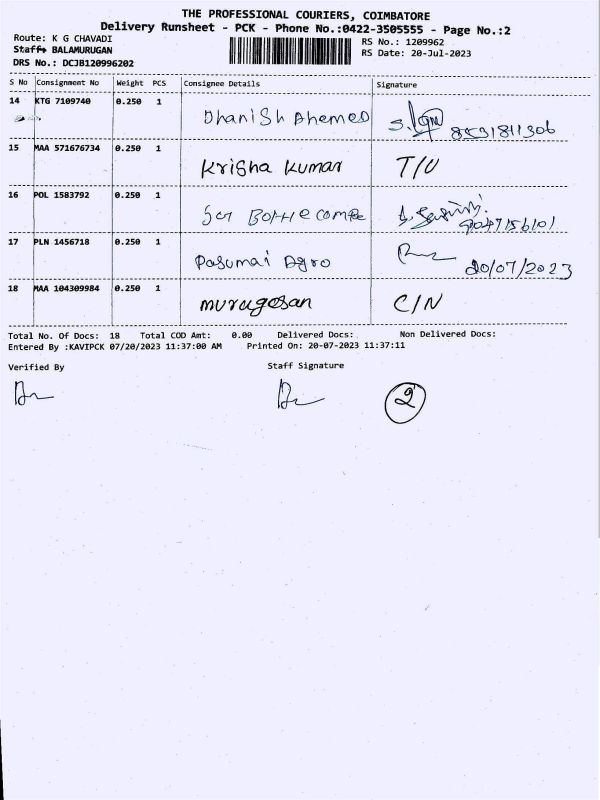 THE PROFESSIONAL COURIERS, COIMBATORE
Delivery Runsheet - PCK - Phone No.:0422-3505555 - Page No.:2
Route: K G CHAVADI
RS No.: 1209962
Staff: BALAMURUGAN
RS Date: 20-Jul-2023
DRS No.: DCJB120996202
S No Consignment No Weight PCS Consignee Details Signature
14 KTG 7109740 0.250 1 Dhanish Ahemed
15 MAA 571676734 0.250 1 Krisha Kumar T/U
16 POL 1583792 0.250 1
17 PLN 1456718 0.250 1 Pasumai Agro 20/07/2023
18 MAA 104309984 0.250 1 murugesan C/N
Total No. Of Docs: 18 Total COD Amt: 0.00 Delivered Docs: Non Delivered Docs:
Entered By :KAVIPCK 07/20/2023 11:37:00 AM Printed On: 20-07-2023 11:37:11
Verified By Staff Signature
2